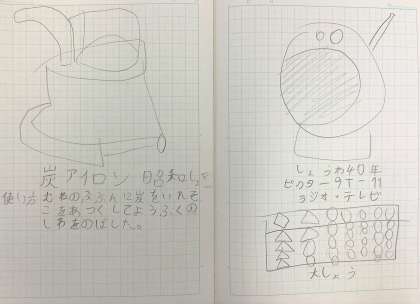 炭アイロン 昭和
使い方 むねのぶぶんに炭をいれそ
こをあつくしてようふくの
しわをのばした。
しょうわ40年
ビクター9T-11
ラジオ・テレビ
大しょう